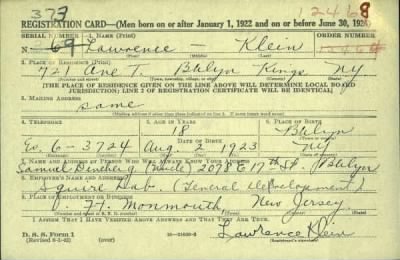 373 12468
REGISTRATION CARD—(Men born on or after January 1, 1922 and on or before June 30, 1924)
SERIAL NUMBER 1. NAME (Print) ORDER NUMBER
N- 69 Lawrence — Klein 12464
2. PLACE OF RESIDENCE (Print)
721 Ave T. Bklyn Kings NY
(Number and street) (Town, township, village, or city) (County) (State)
[THE PLACE OF RESIDENCE GIVEN ON THE LINE ABOVE WILL DETERMINE LOCAL BOARD
JURISDICTION; LINE 2 OF REGISTRATION CERTIFICATE WILL BE IDENTICAL]
3. MAILING ADDRESS
same
4. TELEPHONE 5. AGE IN YEARS 6. PLACE OF BIRTH
18 Bklyn
DATE OF BIRTH
Es. 6-3724 Aug. 2 1923 NY
7. NAME AND ADDRESS OF PERSON WHO WILL ALWAYS KNOW YOUR ADDRESS
Samuel (Uncle) 2078 E 17th St. Bklyn
8. EMPLOYER'S NAME AND ADDRESS
Squire Lab. (General Development)
9. PLACE OF EMPLOYMENT OR BUSINESS
Ft. Monmouth New Jersey
I AFFIRM THAT I HAVE VERIFIED ABOVE ANSWERS AND THAT THEY ARE TRUE.
D. S. S. Form 1
Lawrence Klein
(Registrant's signature)